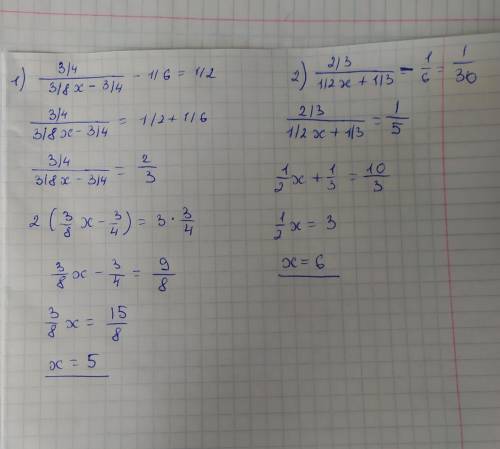 1) (3/4)/(3/8x - 3/4) - 1/6 = 1/2
(3/4)/(3/8x - 3/4) = 1/2 + 1/6
(3/4)/(3/8x - 3/4) = 2/3
2 (3/8 x - 3/4) = 3 · 3/4
3/8 x - 3/4 = 9/8
3/8 x = 15/8
x = 5
2) (2/3)/(1/2x + 1/3) - 1/6 = 1/30
(2/3)/(1/2x + 1/3) = 1/5
1/2 x + 1/3 = 10/3
1/2 x = 3
x = 6